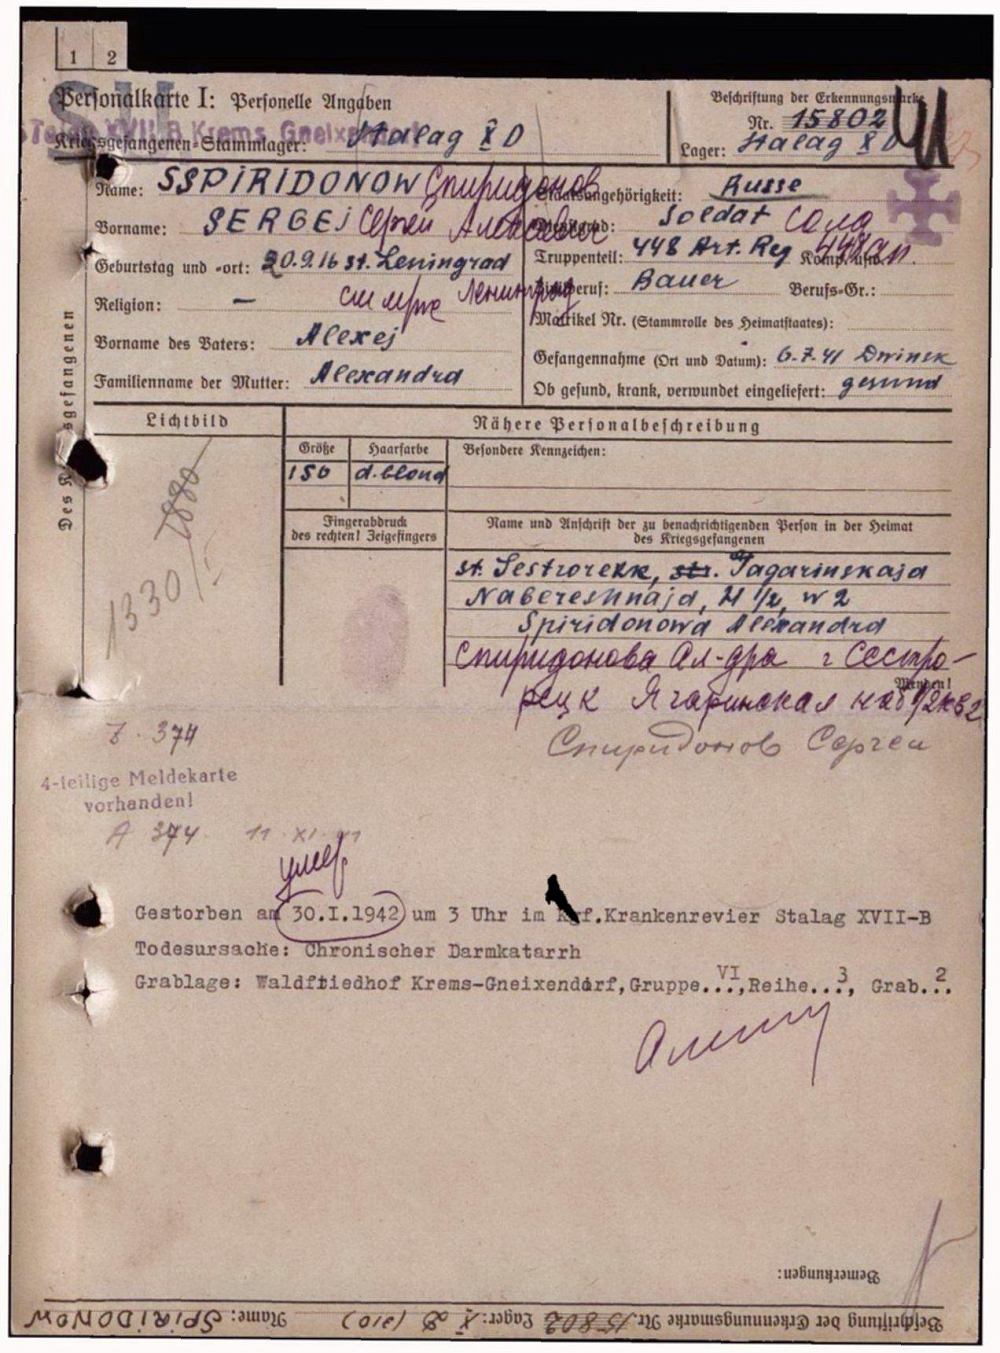 1 2
SU
Personalkarte I: Personelle Angaben
Stalag XVII B Krems Gneixendorf
Kriegsgefangenen-Stammlager: Stalag X D
Beschriftung der Erkennungsmarke
Nr. 15802
Lager: Stalag X D
Des Kriegsgefangenen
Name: SSPIRIDONOW Спиридонов
Vorname: SERGEJ Сергей
Geburtstag und -ort: 20.9.16 st. Leningrad
Ленинград
Religion: —
Vorname des Vaters: Alexej
Familienname der Mutter: Alexandra
Staatsangehörigkeit: Russe
Dienstgrad: Soldat
Truppenteil: 448 Art. Reg Komp. usw. 448 ап
Zivilberuf: Bauer Berufs-Gr.:
Matrikel Nr. (Stammrolle des Heimatstaates):
Gefangennahme (Ort und Datum): 6.7.41 Dwinsk
Ob gesund, krank, verwundet eingeliefert: gesund
Lichtbild
Nähere Personalbeschreibung
Größe Haarfarbe Besondere Kennzeichen:
150 d. blond
Fingerabdruck
des rechten! Zeigefingers
Name und Anschrift der zu benachrichtigenden Person in der Heimat
des Kriegsgefangenen
st. Sestrorezk, str. Jagarinskaja
Nabereshnaja, H 1/2, w 2
Spiridonowa Alexandra
Спиридонова Ал-дра г Сестро-
рецк Ягаринская наб 1/2 кв 2
Wenden!
Спиридонов Сергей
1330
Z. 374
4-teilige Meldekarte
vorhanden!
A 374. 11. XI. 41
умер
Gestorben am 30.I.1942 um 3 Uhr im Kgf.Krankenrevier Stalag XVII-B
Todesursache: Chronischer Darmkatarrh
Grablage: Waldfriedhof Krems-Gneixendorf,Gruppe..VI.,Reihe..3., Grab..2.
Bemerkungen:
Beschriftung der Erkennungsmarke Nr. 15802 Lager: X D (310) Name: SPIRIDONOW